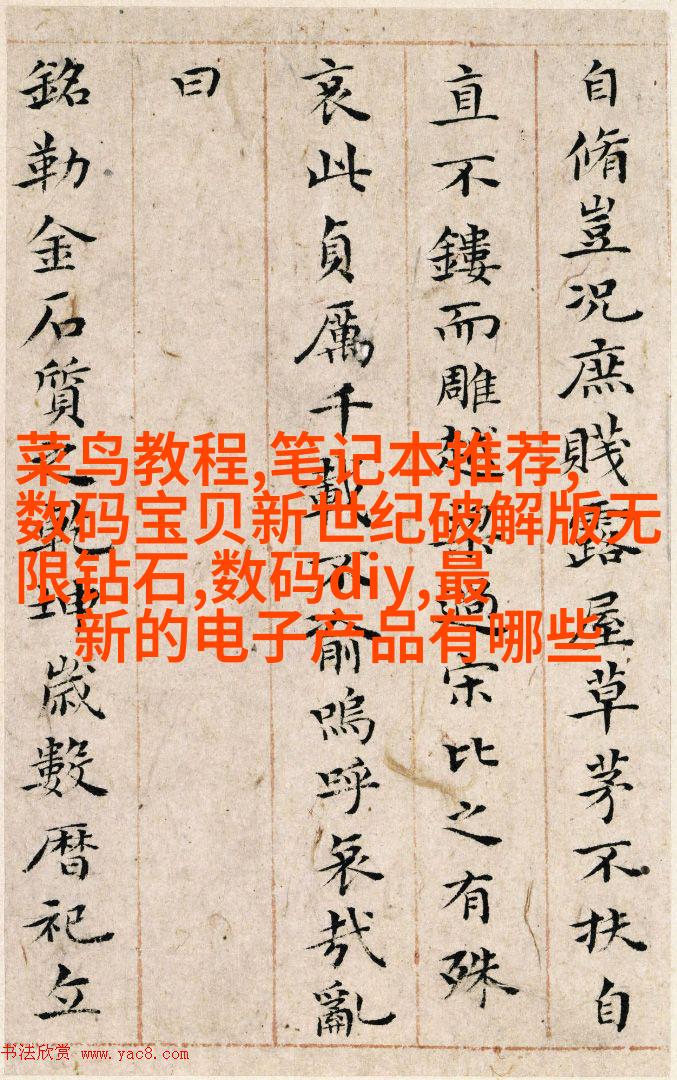 自脩豈况庶賤露屋草茅不扶自
直不鏤而雕越梁過宋比之有殊
哀此貞厲千載不渝嗚呼哀哉亂
曰
銘勒金石質之乾坤歲數暦祀立
菜鸟教程,笔记本推荐,
数码宝贝新世纪破解版无
限钻石,数码diy,最
新的电子产品有哪些
书法欣赏 www.yac8.com